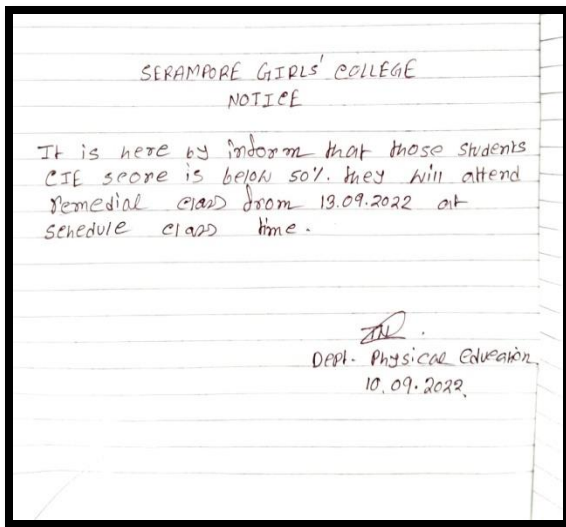 SERAMPORE GIRLS' COLLEGE
NOTICE
It is here by inform that those students
CIE score is below 50%. they will attend
remedial class from 13.09.2022 at
schedule class time.
Dept. Physical Education
10.09.2022